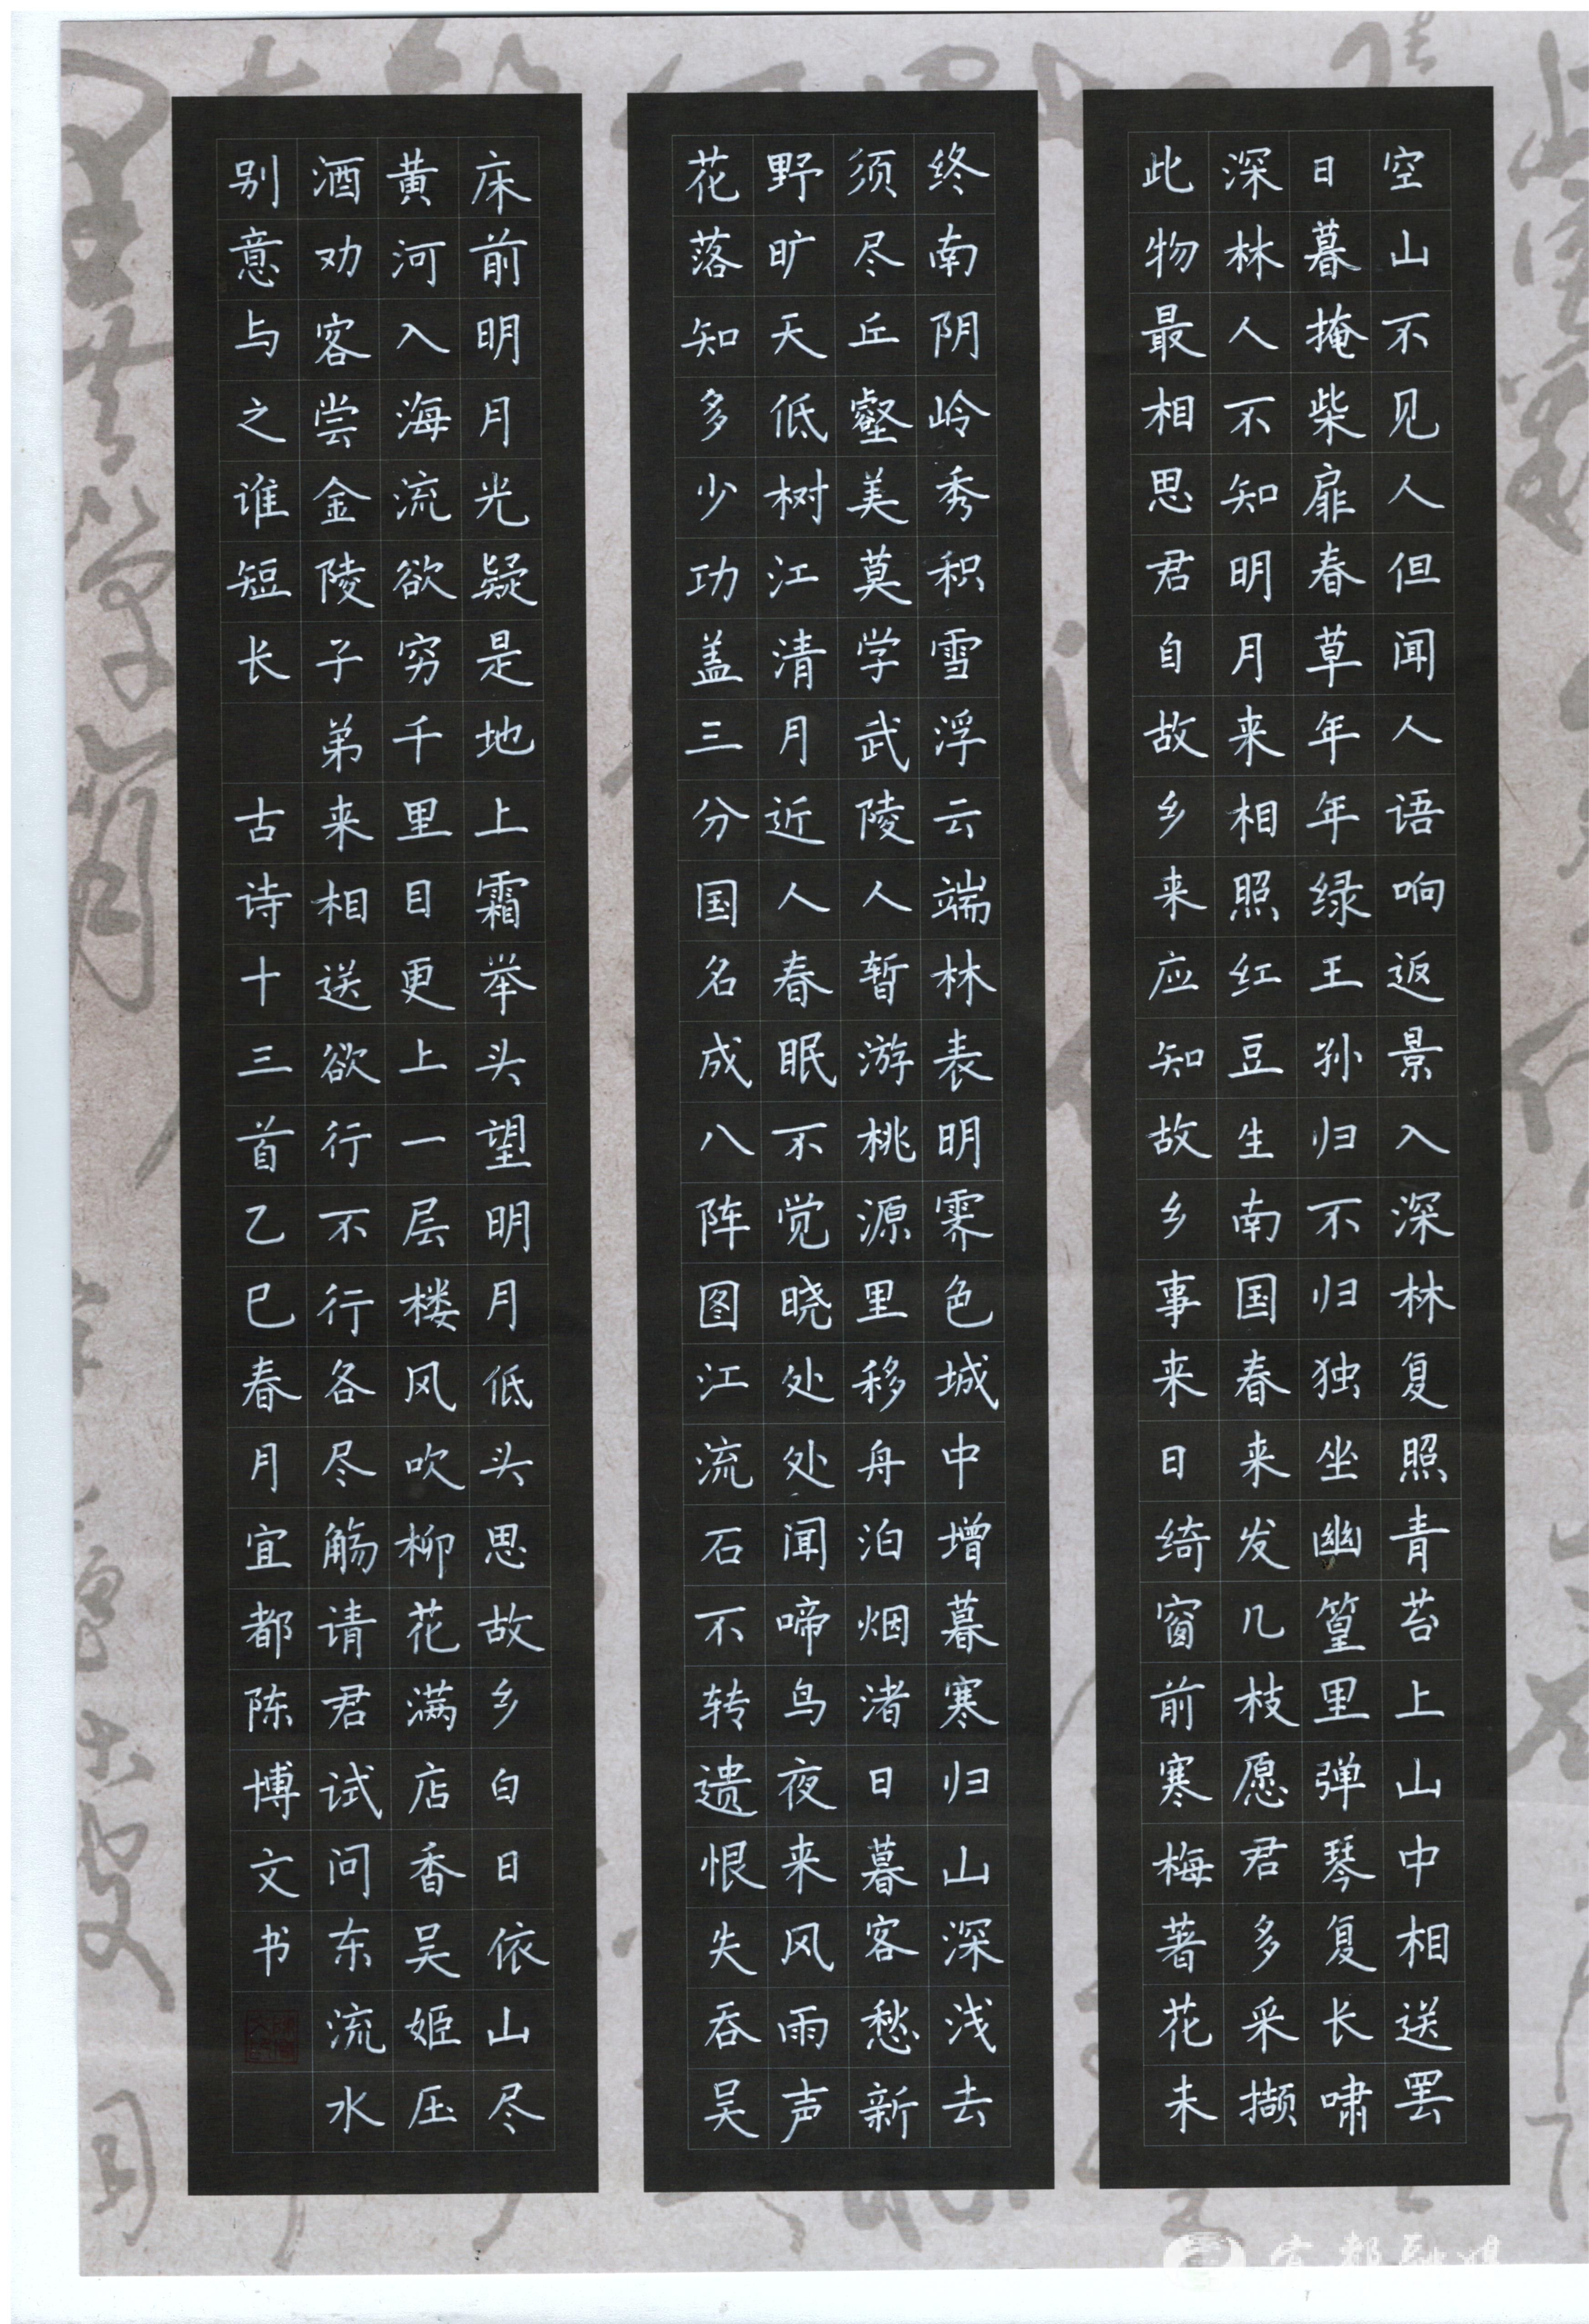 空山不见人但闻人语响返景入深林复照青苔上山中相送罢
日暮掩柴扉春草年年绿王孙归不归独坐幽篁里弹琴复长啸
深林人不知明月来相照红豆生南国春来发几枝愿君多采撷
此物最相思君自故乡来应知故乡事来日绮窗前寒梅著花未
终南阴岭秀积雪浮云端林表明霁色城中增暮寒归山深浅去
须尽丘壑美莫学武陵人暂游桃源里移舟泊烟渚日暮客愁新
野旷天低树江清月近人春眠不觉晓处处闻啼鸟夜来风雨声
花落知多少功盖三分国名成八阵图江流石不转遗恨失吞吴
床前明月光疑是地上霜举头望明月低头思故乡白日依山尽
黄河入海流欲穷千里目更上一层楼风吹柳花满店香吴姬压
酒劝客尝金陵子弟来相送欲行不行各尽觞请君试问东流水
别意与之谁短长 古诗十三首乙巳春月宜都陈博文书
宜都融媒